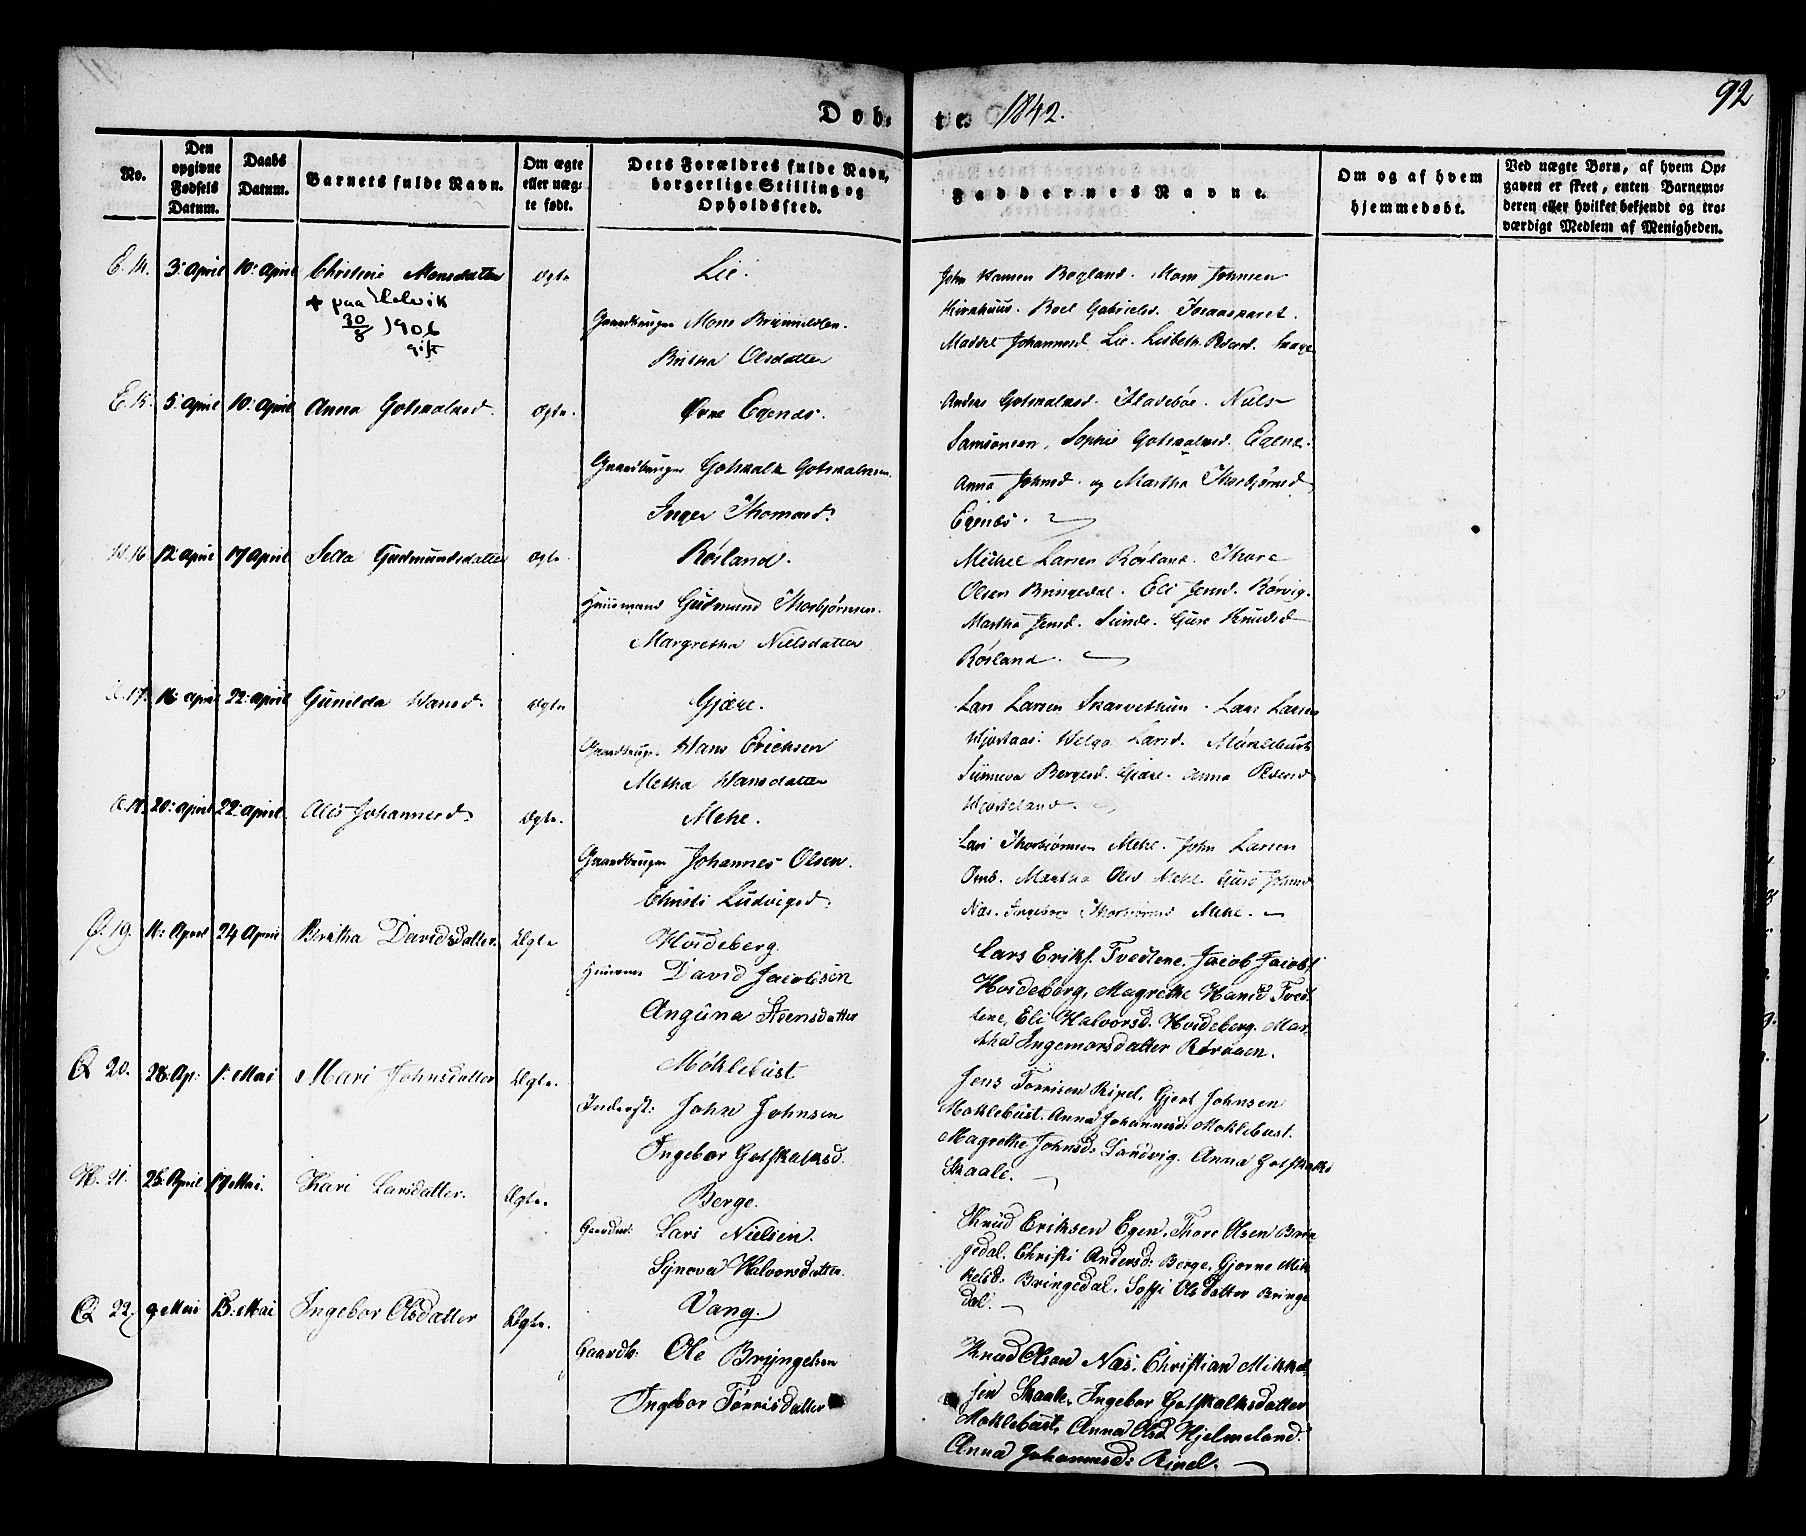 92
Døb- te. 1842.
No.
Den opgivne Fødsels Datum.
Daabs Datum.
Barnets fulde Navn.
Om ægte eller uæg- te født.
Dets Forældres fulde Navn, borgerlige Stilling og Opholdssted.
Faddernes Navne.
Om og af hvem hjemmedøbt.
Ved uægte Børn, af hvem Op- gaven er skeet, enten Barnemo- deren eller hvilket bekjendt og tro- værdigt Medlem af Menigheden.
E. 14. 3: April 10: April Christine Monsdatter Ægte Lie.
+ paa Helvik
30/8 1906
gift
Gaardbruger Mons Brynnildsen.
Britha Olsdatter
John Hansen Bogland. Mons Johnsen
Kirkhuus. Boel Gabrielsd.
Johannesd. Lie. Lisbeth
E. 15. 5: April 10: April Anna Gotskalksd. Ægte. Øvre Egenæs.
Gaardbruger Gotskalk Gotskalksen
Inger Thomasd:
Anders Gotskalksd. Niels
Samsonsen, Sophie Gotskalksd. Egene.
Anna Johnsd. og Martha Thorbjørnsd
Egenæs.
16 12: April 17 April Sella Gudmundsdatter Ægte. Røsland.
Huusmand Gudmund Thorbjørnsen.
Margretha Nielsdatter
Michel Larsen Røsland. Thore
Olsen Bringedal. Eli Jensd. Rørvig.
Martha Jensd. Sunde. Guro Knudsd
Røsland.
17. 16: April 22: April Gunilda Hansd. Ægte Gjære.
Gaardbruger Hans Erichsen
Metha Hansdatter
Lars Larsen Skarvethun. Lars Larsen
Hjortaas: Helga Larsd. Møklebust
Sünneva Bergesd. Gjære. Anna Olsend
Hjorteland.
18. 20: April 22: April Alis Johannesd. Ægte. Mehe.
Gaardbruger Johannes Olsen.
Christi Ludvigsd.
Lars Thorbiørnsen Mehe. John Larsen
Omb. Martha Olsd Mehe. Guro Johnsd
Næs. Ingebor Thorbiørnsd Mehe.
Q. 19. 11: April 24 April Bretha Davidsdatter. Ægte Hvideberg.
Huusman David Jacobsen
Anguna Steensdatter
Lars Eriks. Tvedtene. Jacob Jacobs.
Hvideberg, Magrethe Hansd Tved-
tene, Eli Halvorsd. Hvideberg. Mar-
tha Ingemorsdatter Røraaen.
Q 20. 28: Ap: 1: Mai Mari Johnsdatter Ægte. Møklebust
Inderst: John Johnsen
Ingebor Gotskalksd.
Jens Torrisen Ripel, Gjert Johnsen
Moklebust. Anna Johannesd: Moklebust.
Magrethe Johnsd: Sandvig. Anna Gotskalks
Skaale.
H. 21. 25: April 17 Mai. Kari Larsdatter. Ægte. Berge.
Gaardm: Lars Nielsen.
Synova Halvorsdatter.
Knud Eriksen Egen, Thore Olsen Brin-
gedal. Christi Andersd: Berge, Gjorne Mik-
kelsd: Bringedal. Soffi Olsdatter Bringe
dal.
Q 22. 9 Mai 15: Mai Ingebor Olsdatter Ægte. Vang.
Gaardb: Ole Bryngelsen
Ingebor Torrisdatter
Knud Olson Næs. Christian Mikkel
sen Skaale, Ingebor Gotskalksdatter
Moklebust, Anna Olsd Hjelmeland.
Anna Johannesd: Ripel.